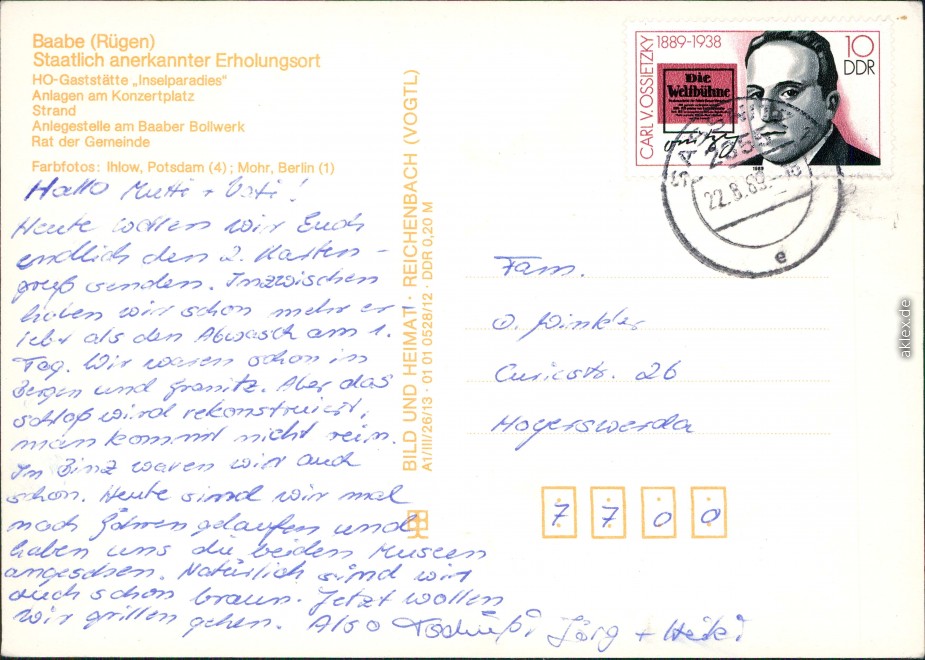 Baabe (Rügen)
Staatlich anerkannter Erholungsort
HO-Gaststätte „Inselparadies"
Anlagen am Konzertplatz
Strand
Anlegestelle am Baaber Bollwerk
Rat der Gemeinde
Farbfotos: Ihlow, Potsdam (4); Mohr, Berlin (1)
Hallo Mutti + Vati!
Heute wollen wir Euch
endlich den 2. Karten-
gruß senden. Inzwischen
haben wir schon mehr er-
lebt als den Abwasch am 1.
Tag. Wir waren schon in
Bergen und Granitz. Aber das
Schloß wird rekonstruiert,
man kommt nicht rein.
In Binz waren wir auch
schon. Heute sind wir mal
nach Göhren gelaufen und
haben uns die beiden Museen
angesehen. Natürlich sind wir
auch schon braun. Jetzt wollen
wir grillen gehen. Also Tschüß! Jörg + Heiki
BILD UND HEIMAT · REICHENBACH (VOGTL)
A1/III/26/13 · 01 01 0528/12 · DDR 0,20 M
CARL V. OSSIETZKY 1889-1938
10
DDR
Die
Weltbühne
1989
2355
22.8.89
e
Fam.
O. Winkler
Curiestr. 26
Hoyerswerda
7 7 0 0
akpool.de